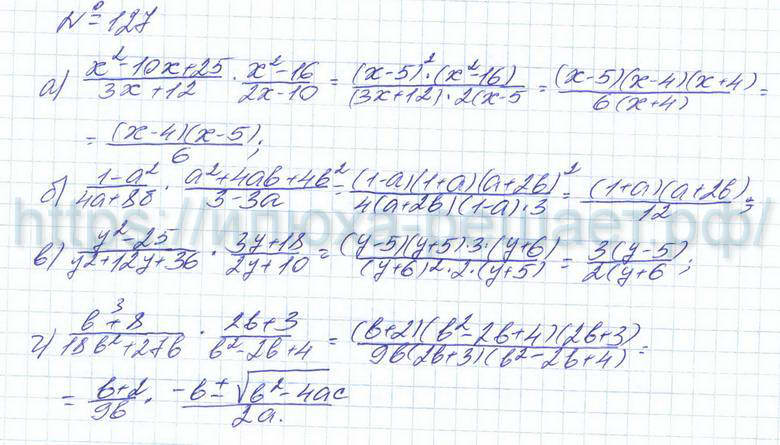 № 127
а) (x²-10x+25)/(3x+12) · (x²-16)/(2x-10) = ((x-5)²·(x²-16))/((3x+12)·2(x-5) = ((x-5)(x-4)(x+4))/(6(x+4)) =
= ((x-4)(x-5))/6;
б) (1-a²)/(4a+8b) · (a²+4ab+4b²)/(3-3a) = ((1-a)(1+a)(a+2b)²)/(4(a+2b)(1-a)·3) = ((1+a)(a+2b))/12;
в) (y²-25)/(y²+12y+36) · (3y+18)/(2y+10) = ((y-5)(y+5)·3·(y+6))/((y+6)²·2·(y+5)) = (3(y-5))/(2(y+6);
г) (b³+8)/(18b²+27b) · (2b+3)/(b²-2b+4) = ((b+2)(b²-2b+4)(2b+3))/(9b(2b+3)(b²-2b+4)) =
= (b+2)/(9b) · (-b±√(b²-4ac))/(2a.)